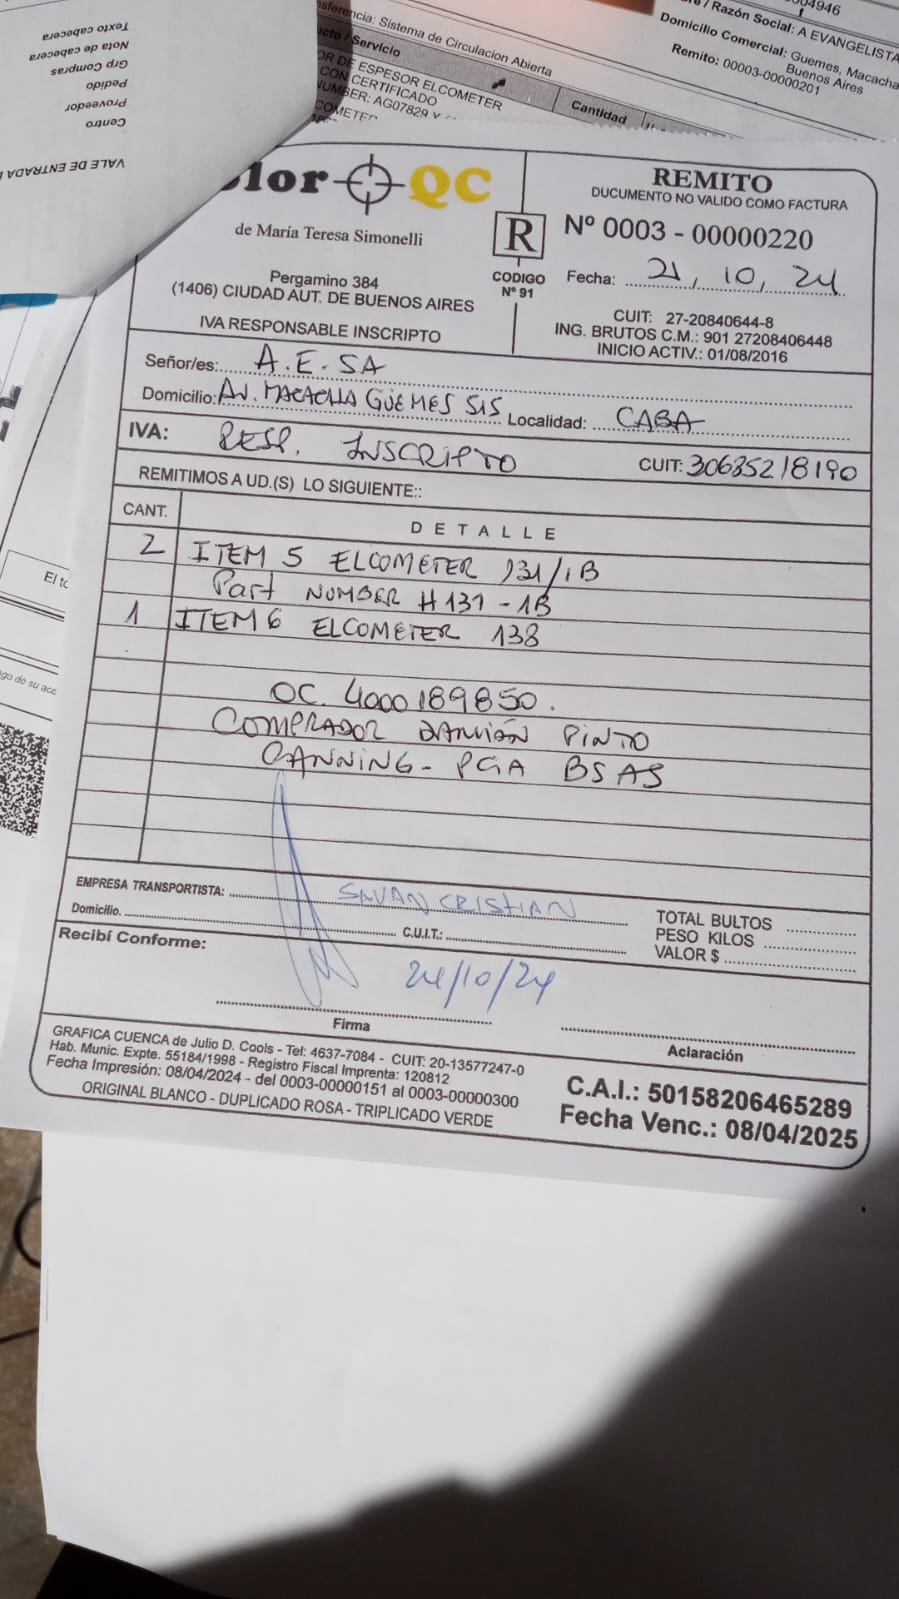 004946
/ Razón Social: A EVANGELISTA
Domicilio Comercial: Guemes, Macacha
Buenos Aires
Remito: 00003-00000201
sferencia: Sistema de Circulacion Abierta
cto / Servicio
Cantidad
OR DE ESPESOR ELCOMETER
CON CERTIFICADO
NUMBER: AG07829 Y
COMETER
Texto cabecera
Nota de cabecera
Grp Compras
Pedido
Proveedor
Centro
VALE DE ENTRADA
lor QC
de María Teresa Simonelli
Pergamino 384
(1406) CIUDAD AUT. DE BUENOS AIRES
IVA RESPONSABLE INSCRIPTO
R
CODIGO
Nº 91
REMITO
DUCUMENTO NO VALIDO COMO FACTURA
Nº 0003 - 00000220
Fecha: 21, 10, 24
CUIT: 27-20840644-8
ING. BRUTOS C.M.: 901 27208406448
INICIO ACTIV.: 01/08/2016
Señor/es: A.E.SA
Domicilio: AV. MACACHA GÜEMES 515 Localidad: CABA
IVA: RESP. INSCRIPTO CUIT: 30685218190
REMITIMOS A UD.(S) LO SIGUIENTE::
CANT. DETALLE
2 ITEM 5 ELCOMETER 131/1B
Part NUMBER H131-1B
1 ITEM 6 ELCOMETER 138
OC. 4000189850.
COMPRADOR DAMIÁN PINTO
CANNING - PCIA BSAS
EMPRESA TRANSPORTISTA: SAVAN CRISTIAN
Domicilio. C.U.I.T.:
TOTAL BULTOS
PESO KILOS
VALOR $
Recibí Conforme:
24/10/24
Firma
Aclaración
GRAFICA CUENCA de Julio D. Cools - Tel: 4637-7084 - CUIT: 20-13577247-0
Hab. Munic. Expte. 55184/1998 - Registro Fiscal Imprenta: 120812
Fecha Impresión: 08/04/2024 - del 0003-00000151 al 0003-00000300
ORIGINAL BLANCO - DUPLICADO ROSA - TRIPLICADO VERDE
C.A.I.: 50158206465289
Fecha Venc.: 08/04/2025
El to
go de su ace